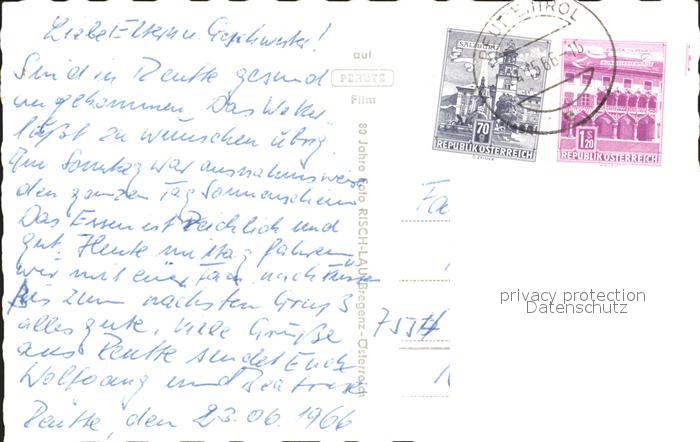 Liebe Eltern u. Geschwister!
Sind in Reutte gesund
angekommen. Das Wetter
läßt zu wünschen übrig.
Am Sonntag war ausnahmsweise
den ganzen Tag Sonnenschein
Das Essen ist Reichlich und
gut. Heute mittag fahren
wir mit einer nach Füssen
Bis zum nächsten Gruß
alles gute, viele Grüße
aus Reutte sendet Euch
Wolfgang und
Reutte, den 23.06.1966
auf
PERUTZ
Film
80 Jahre Foto RISCH-LAU Bregenz-Österreich
REUTTE, TIROL
SALZBURG
70
REPUBLIK ÖSTERREICH
1 S 20
REPUBLIK ÖSTERREICH
Fa
755
privacy protection
Datenschutz